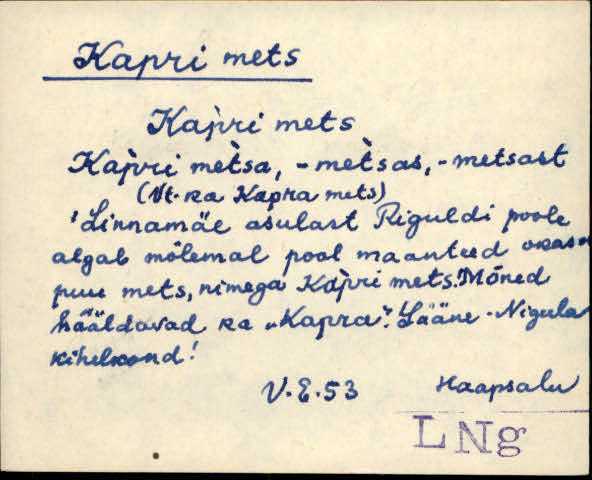 Kapri mets
Kap̀ri mets
Kap̀ri met̀sa, -met̀sas, -metsast
(Vt. ka Kapra mets)
'Linnamäe asulast Riguldi poole
algab mõlemal pool maanteed okas-
puu mets, nimega Kap̀ri mets. Mõned
hääldavad ka „Kapra". Lääne-Nigula
kihelkond!
V.E.53 Haapsalu
LNg